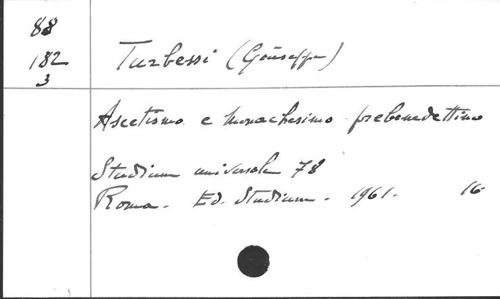 88
182
3
Turbessi (Giuseppe)
Ascetismo e monachesimo prebenedettino
Studium universale 78
Roma. Ed. Studium. 1961. 16